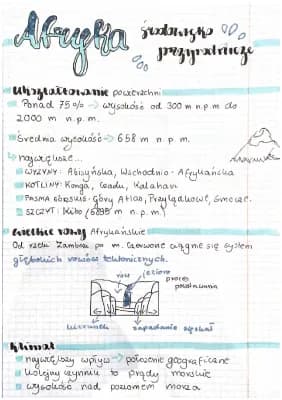 Afryka
środowisko
przyrodnicze
Ukształtowanie powierzchni
Ponad 75% → wysokość od 300 m n.p.m. do
2000 m n.p.m.
Średnia wysokość → 658 m n.p.m.
najwyższe...
WYŻYNY: Abisyńska, Wschodnio-Afrykańska
KOTLINY: Konga, Czadu, Kalahari
PASMA GÓRSKIE: Góry Atlas, Przylądkowe, Smocze.
SZCZYT: Kibo (5895 m n.p.m.)
Wielkie rowy Afrykańskie
Od rzeki Zambezi po m. Czerwone ciągnie się system
głębokich rowów tektonicznych.
rów
jezioro
proces
powstawania
kierunki
zapadanie się skał
Klimat
najwyższy wpływ → położenie geograficzne
kolejny czynnik to prądy morskie
wysokość nad poziomem morza